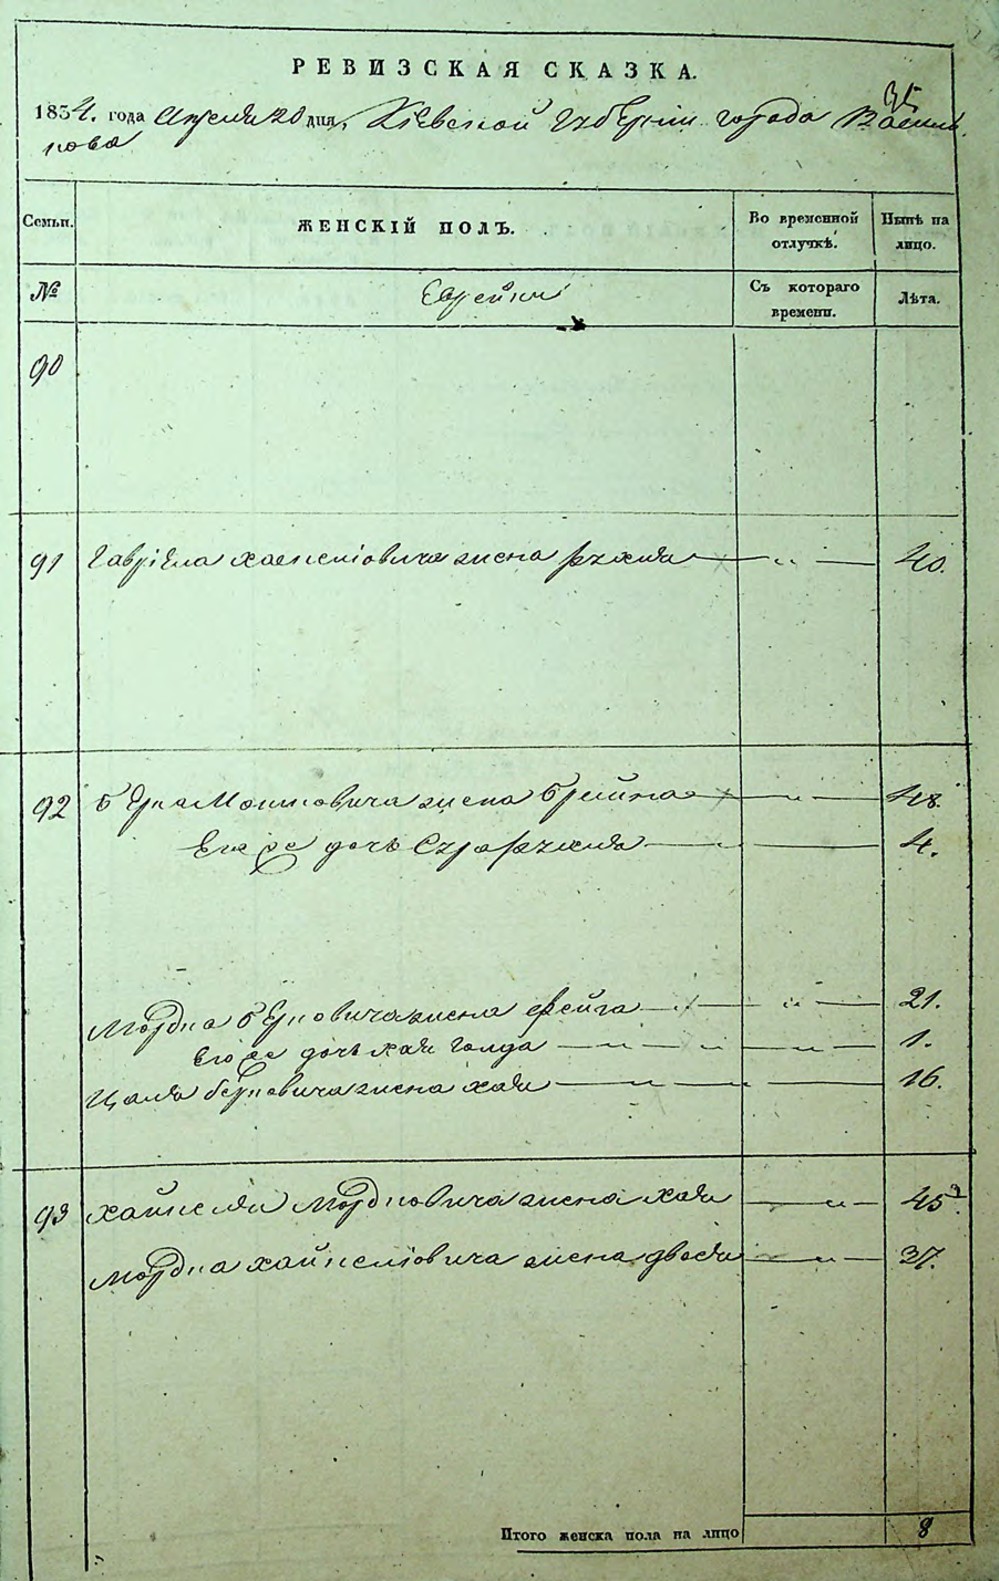 РЕВИЗСКАЯ СКАЗКА.
35
1854. года Апреля 20 дня, Кіевской Губерніи города Василь
кова
Семьи.
ЖЕНСКІЙ ПОЛЪ.
Во временной отлучкѣ.
Нынѣ на лицо.
№
Еврейки
Съ котораго времени.
Лѣта.
90
91 Гавріела Хаскеліовича жена Рухля — „ — 40.
92 Берка Мошковича жена Брайна — „ — 48.
Его же дочь Сура Рухля — 4.
Мордка Берковича жена Фейга — „ — 21.
Его же дочь Хая Голда — „ — „ — „ — 1.
Цаля Берковича жена Хая — „ — „ — 16.
93 Хайкеля Мордковича жена Хая — „ — 45.
Мордка Хайкеліовича жена Двося — „ — 37.
Итого женска пола на лицо 8